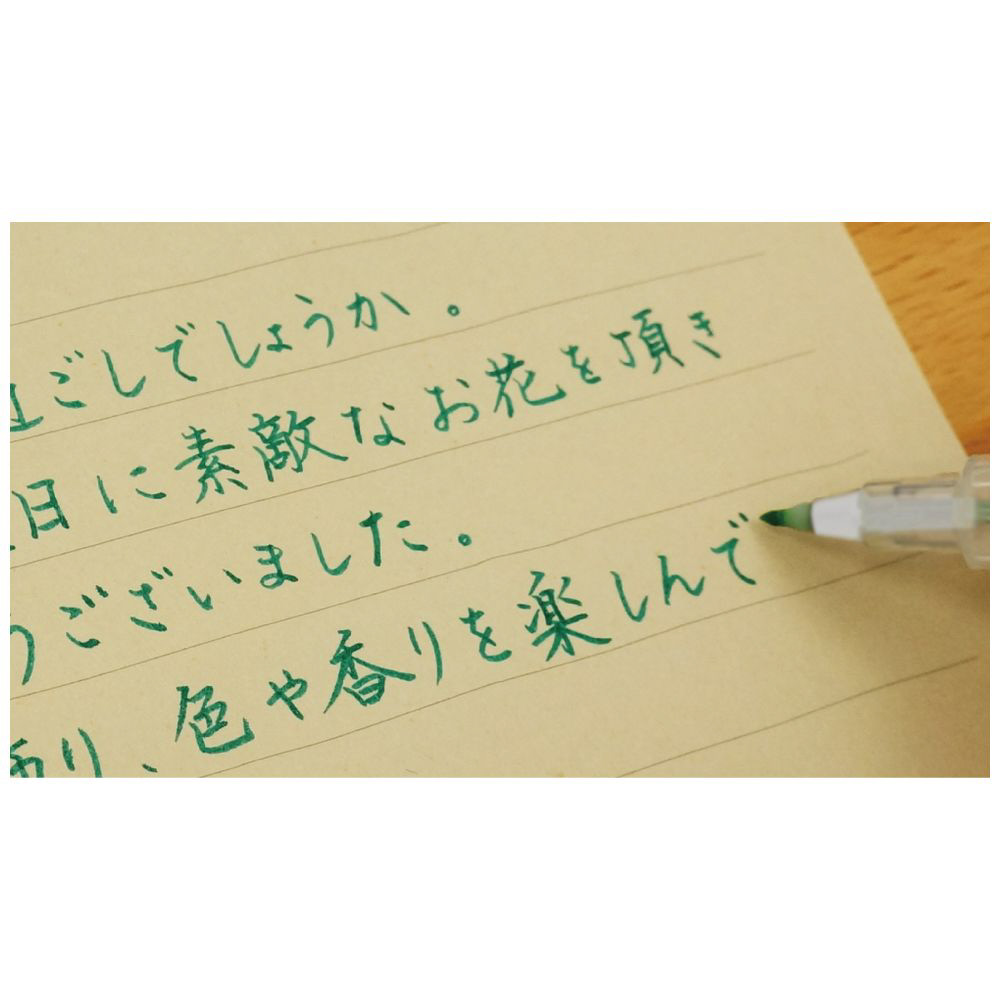 過ごしでしょうか。
日に素敵なお花を頂き
うございました。
飾り、色や香りを楽しんで